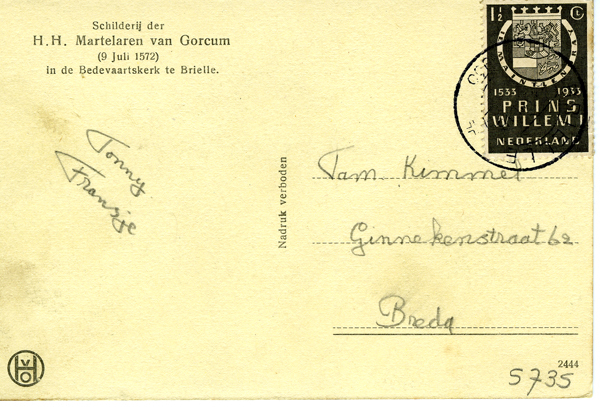 Schilderij der
H.H. Martelaren van Gorcum
(9 Juli 1572)
in de Bedevaartskerk te Brielle.
Tonny
Fransje
Nadruk verboden
1½ Ct
JE MAINTIENDRAI
1533 1933
PRINS
WILLEM I
NEDERLAND
Fam. Kimmel
Ginnekenstraat 62
Breda
2444
5735